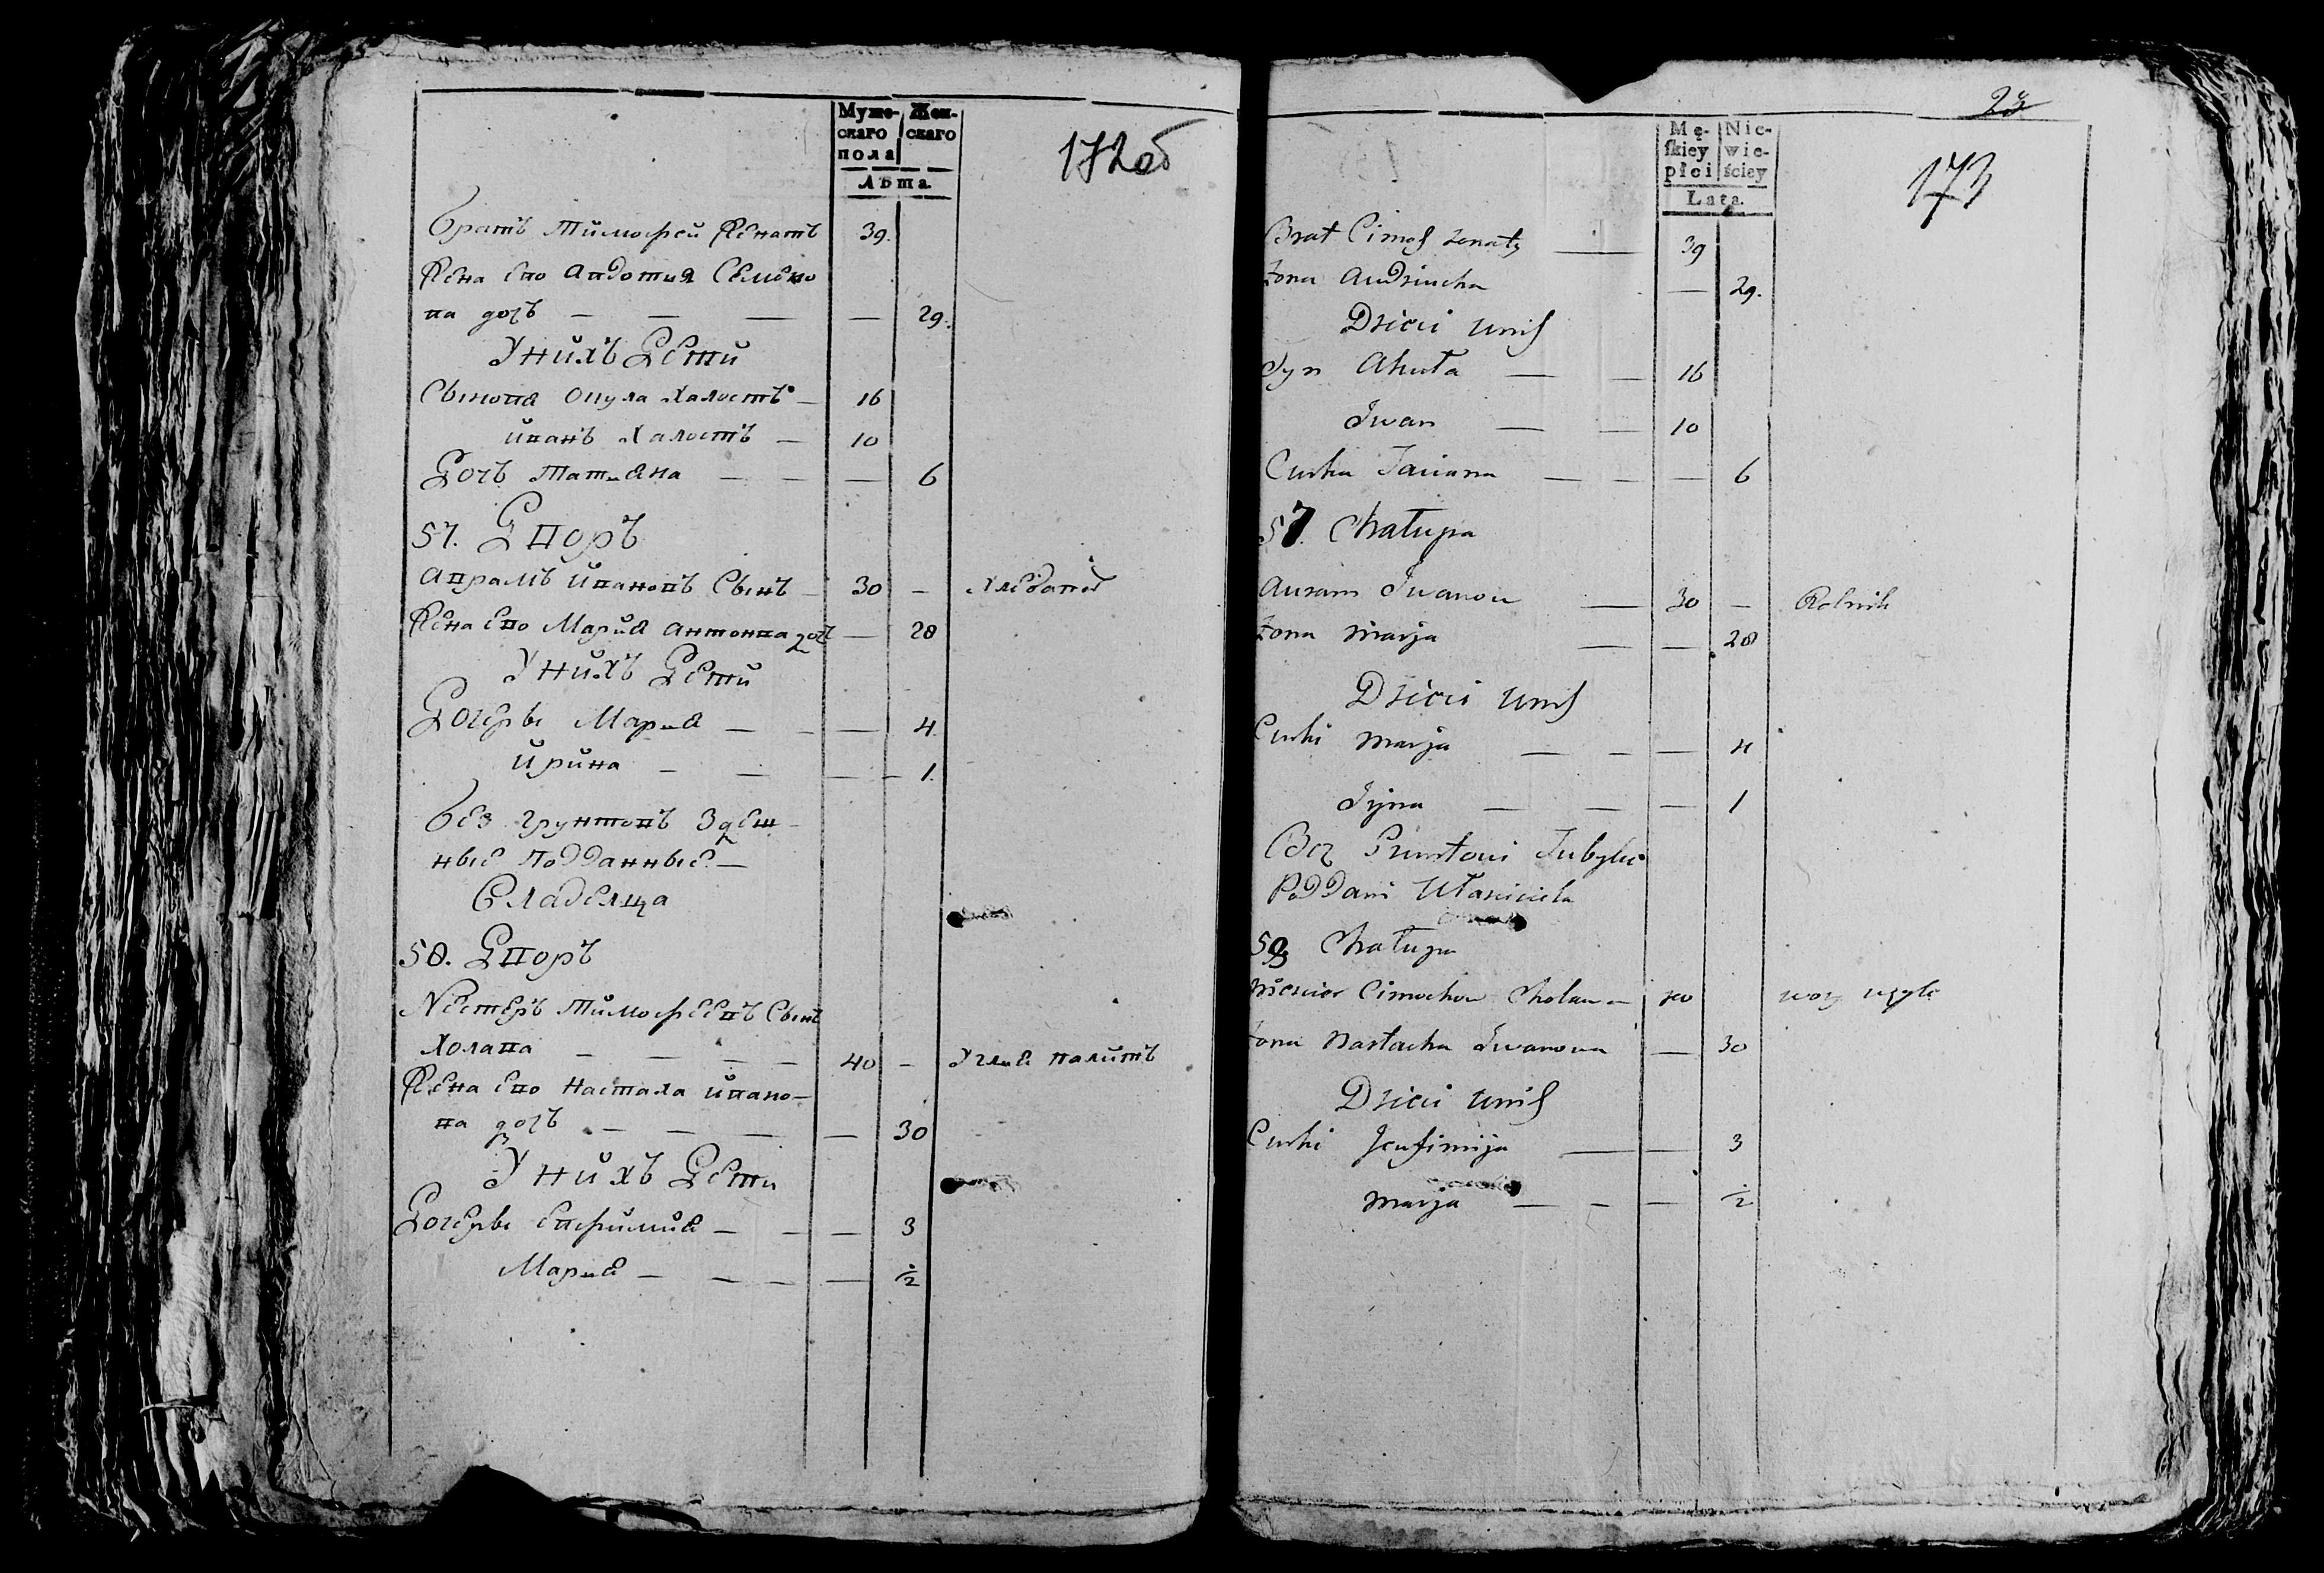 Муже-
скаго
пола
Жен-
скаго
Лѣта.
172об
братъ Тимофей Женатъ 39.
Жена Его Авдотия Семено
ва дочь — — — — 29.
У нихъ Дети
Сыновя Окула Халостъ — 16
Иванъ Халостъ — 10
Дочь Татияна — — — 6
57. Дворъ
Аврамъ Ивановъ Сынъ — 30 —
Жена Его Мария Антонва дочь — 28
У нихъ Дети
Дочеры Мария — — — 4.
Ирина — — — — 1.
без грунтовъ Здеш-
ные Подданные —
Владелца
58. Дворъ
Нестеръ Тимофеевъ Сынъ
Холава — — — — 40 — Угля палитъ
Жена Его Настаха Ивано-
ва дочь — — — — 30
У нихъ Дети
Дочеры Евфимия — — — 3
Мария — — — — ½
23
Mę-
skiey
płci
Nie-
wie-
ściey
Lata.
173
Brat Cimoch żonaty — 39
żona Audziucha — 29.
Dzieci u nich
Syn Akuła — — 16
Iwan — — 10
Curka Taciana — — — 6
57. Chałupa
Auram Iwanow — 30 — Rolnik
żona Marja — — 28
Dzieci u nich
Curki Marja — — — 4
Iryna — — — 1
Bez Gruntowi Tubylce
Poddani Własciciela
58 Chałupa
Niescier Cimochow Cholawa — 40
żona Nastacha Iwanowa — 30
Dzieci u nich
Curki Jeufimija — — 3
Marja — — — ½